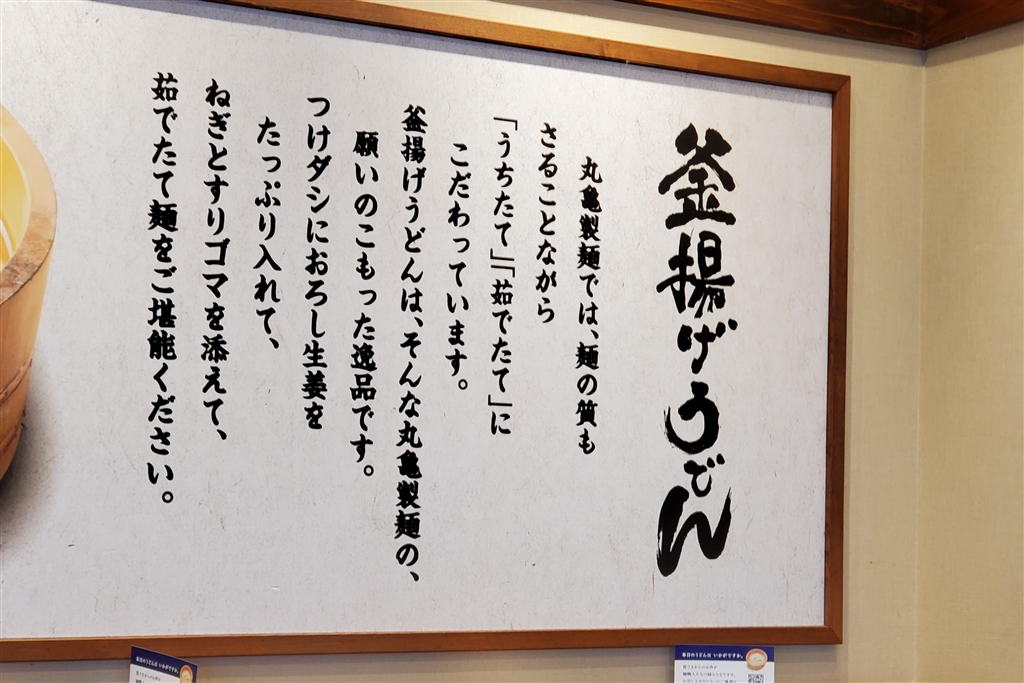 釜揚げうどん
丸亀製麺では、麺の質も
さることながら
「うちたて」「茹でたて」に
こだわっています。
釜揚げうどんは、そんな丸亀製麺の、
願いのこもった逸品です。
つけダシにおろし生姜を
たっぷり入れて、
ねぎとすりゴマを添えて、
茹でたて麺をご堪能ください。
毎日のうどんは いかがですか。
毎日のうどんは いかがですか。